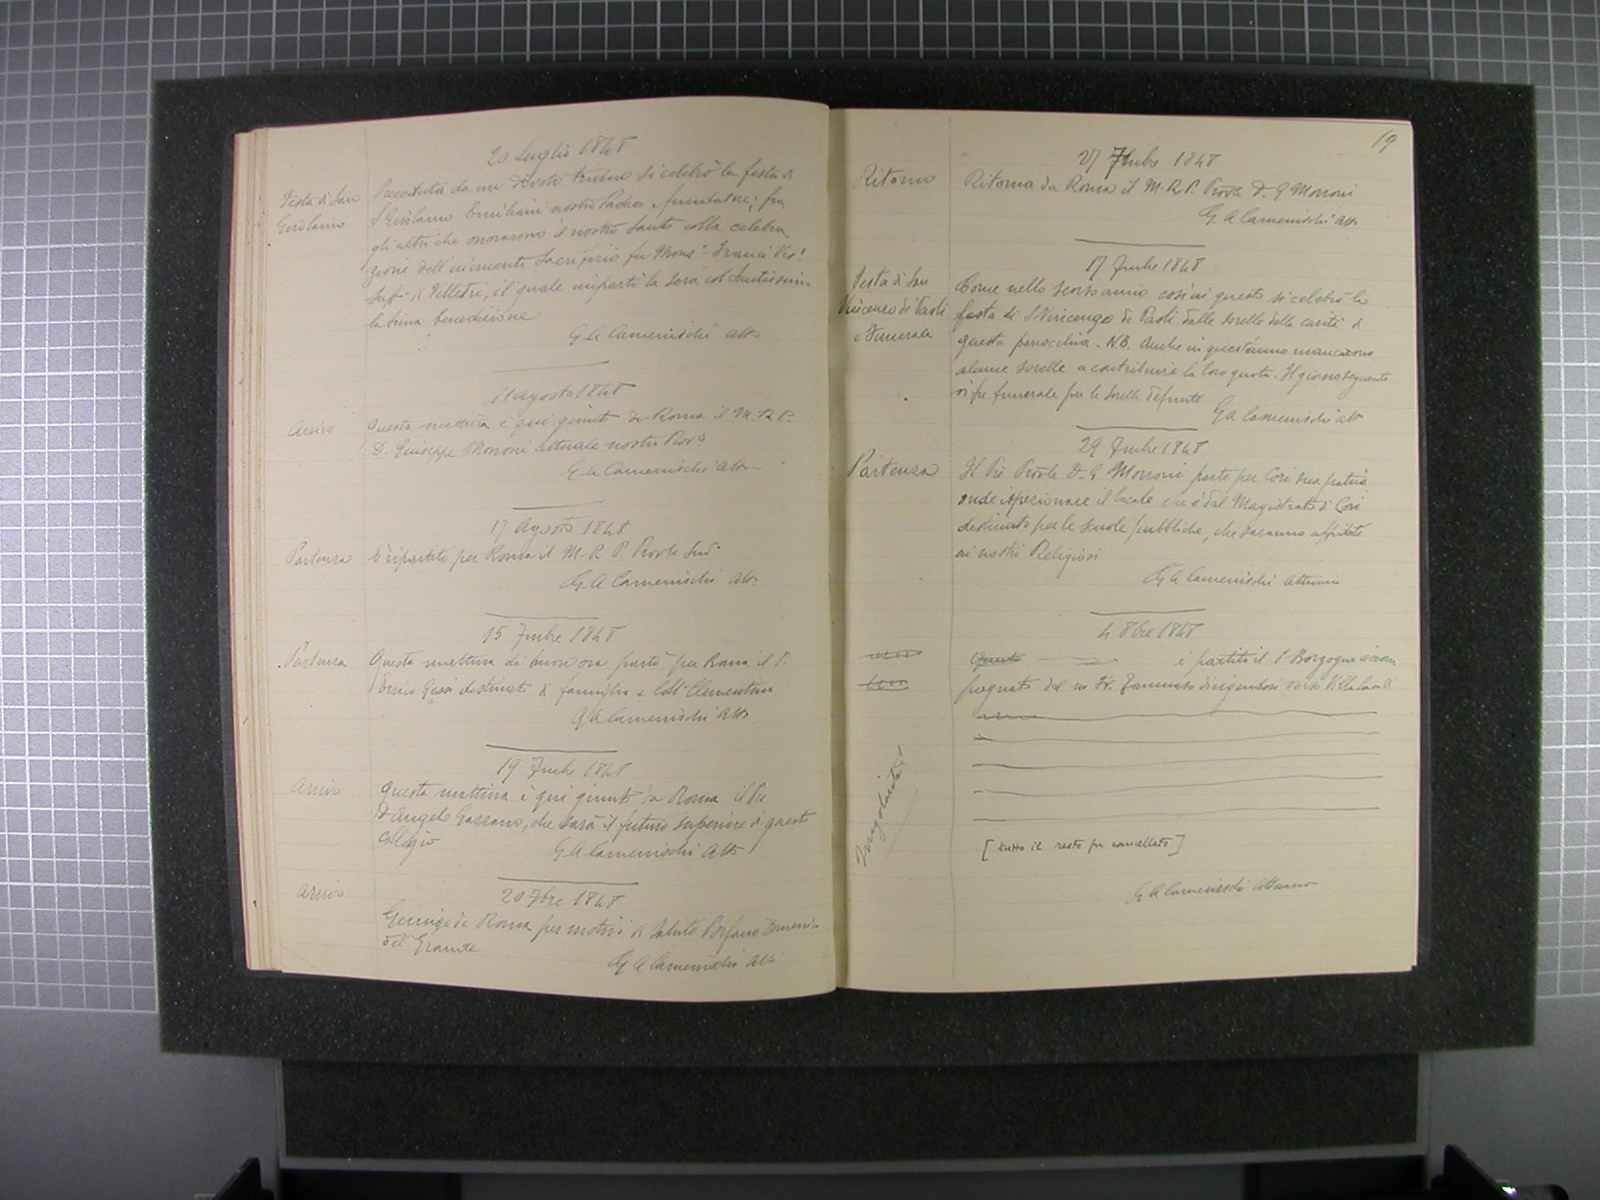 20 Luglio 1848
Festa di San
Girolamo
Preceduta da un divoto triduo si celebrò la festa di
S Girolamo Emiliani nostro Padre e fondatore; fra
gli altri che onorarono il nostro Santo colla celebra
zione dell'incruento Sacrifizio fu Mons.
Suff. di Velletri, il quale impartì la sera col Santissimo
la trina benedizione
G A Camenischi Att.
11 agosto 1848
Arrivo
Questa mattina è qui giunto da Roma il M. R. P.
D. Giuseppe Morroni attuale nostro Prov.
G A Camenischi Att.
17 Agosto 1848
Partenza
È ripartito per Roma il M. R. P. Provle Sud.
G. A Camenischi Att.
15 7mbre 1848
Partenza
Questa mattina di buon'ora partì per Roma il P.
Enrico Gessi destinato di famiglia a Coll. Clementino
G A Camenischi Att.
19 7mbre 1848
Arrivo
Questa mattina è qui giunto da Roma il Pre
D Angelo Gazzano, che sarà il futuro superiore di questo
collegio
G A Camenischi Att.
20 7bre 1848
Arrivo
Giunge da Roma per motivi di salute l'orfano Domenico
del Grande
G A Camenischi Att.
19
27 7mbre 1848
Ritorno
Ritorna da Roma il M. R. P. Provle D. G Morroni
G. A Camenischi Att.
17 7mbre 1848
Festa di San
Vincenzo di Paoli
e Funerale
Come nello scorso anno così in questo si celebrò la
festa di S Vincenzo de Paoli dalle sorelle della carità di
questa parrocchia. N.B. Anche in quest'anno mancarono
alcune sorelle a contribuire la loro quota. Il giorno seguente
si fe funerale per le sorelle defunte
G A Camenischi Att
29 7mbre 1848
Partenza
Il Pre Provle D. G Morroni parte per Cori sua patria
onde ispezionare il locale che è dal Magistrato di Cori
destinato per le scuole pubbliche, che saranno affidate
ai nostri Religiosi
G A Camenischi Attuario
4 8bre 1848
Questo è partito il P Borgogno accom
pagnato dal dirigendosi verso
[tutto il resto fu cancellato]
G A Camenischi Attuario